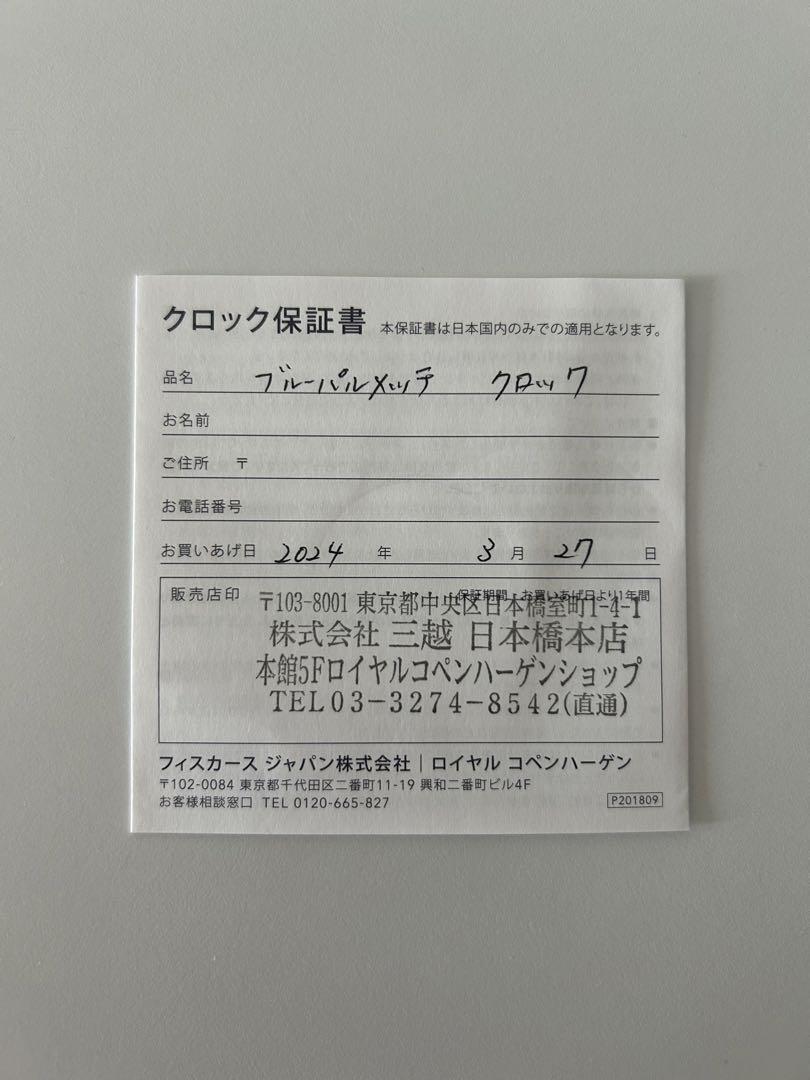 クロック保証書 本保証書は日本国内のみでの適用となります。
品名 ブルーパルメッテ クロック
お名前
ご住所 〒
お電話番号
お買いあげ日 2024 年 3 月 27 日
販売店印 保証期間 お買いあげ日より1年間
〒103-8001 東京都中央区日本橋室町1-4-1
株式会社 三越 日本橋本店
本館5Fロイヤルコペンハーゲンショップ
TEL03-3274-8542(直通)
フィスカース ジャパン株式会社｜ロイヤル コペンハーゲン
〒102-0084 東京都千代田区二番町11-19 興和二番町ビル4F
お客様相談窓口 TEL 0120-665-827
P201809